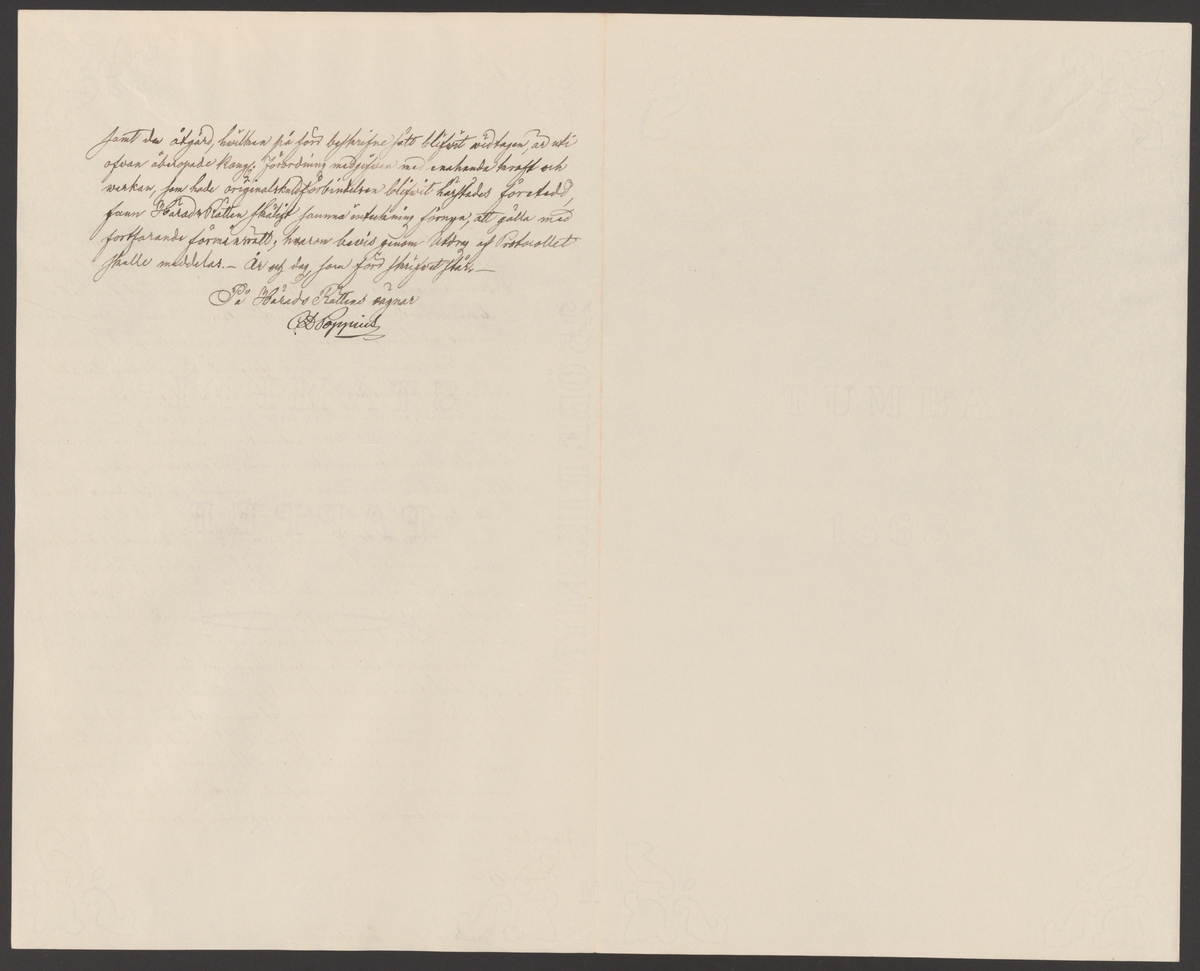 samt den åtgärd, hvilken på förd beskrifne sätt blifvit vidtagen, är uti
ofvan åberopade Kongl. Förordning medgifven med enahanda kraft och
werkan, som hade originalskuldförbindelsen blifvit härstädes företedd,
fann HäradsRätten skäligt samma inteckning förnya, att gälla med
fortfarande förmånsrätt; hvarom bevis genom Utdrag af Protocollet
skulle meddelas. — År och dag, som förd skrifvet står. —
På Härads Rättens vägnar
Poppius